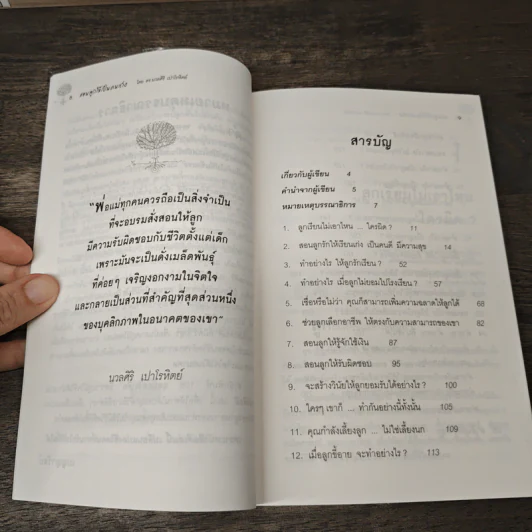 สอนลูกให้เป็นคนเก่ง โดย ดร.นวลศิริ เปาโรหิตย์
"พ่อแม่ทุกคนควรถือเป็นสิ่งจำเป็น
ที่จะอบรมสั่งสอนให้ลูก
มีความรับผิดชอบกับชีวิตตั้งแต่เด็ก
เพราะมันจะเป็นดั่งเมล็ดพันธุ์
ที่ค่อยๆ เจริญงอกงามในจิตใจ
และกลายเป็นส่วนที่สำคัญที่สุดส่วนหนึ่ง
ของบุคลิกภาพในอนาคตของเขา"
นวลศิริ เปาโรหิตย์
สารบัญ
เกี่ยวกับผู้เขียน 4
คำนำจากผู้เขียน 5
หมายเหตุบรรณาธิการ 7
1. ลูกเรียนไม่เอาไหน ... ใครผิด? 11
2. สอนลูกรักให้เรียนเก่ง เป็นคนดี มีความสุข 14
3. ทำอย่างไร ให้ลูกรักเรียน? 52
4. ทำอย่างไร เมื่อลูกไม่ยอมไปโรงเรียน? 57
5. เชื่อหรือไม่ว่า คุณก็สามารถเพิ่มความฉลาดให้ลูกได้ 68
6. ช่วยลูกเลือกอาชีพ ให้ตรงกับความสามารถของเขา 82
7. สอนลูกให้รู้จักใช้เงิน 87
8. สอนลูกให้รับผิดชอบ 95
9. จะสร้างวินัยให้ลูกยอมรับได้อย่างไร? 100
10. ใครๆ เขาก็ ... ทำกันอย่างนี้ทั้งนั้น 105
11. คุณกำลังเลี้ยงลูก ... ไม่ใช่เลี้ยงนก 109
12. เมื่อลูกขี้อาย จะทำอย่างไร? 113